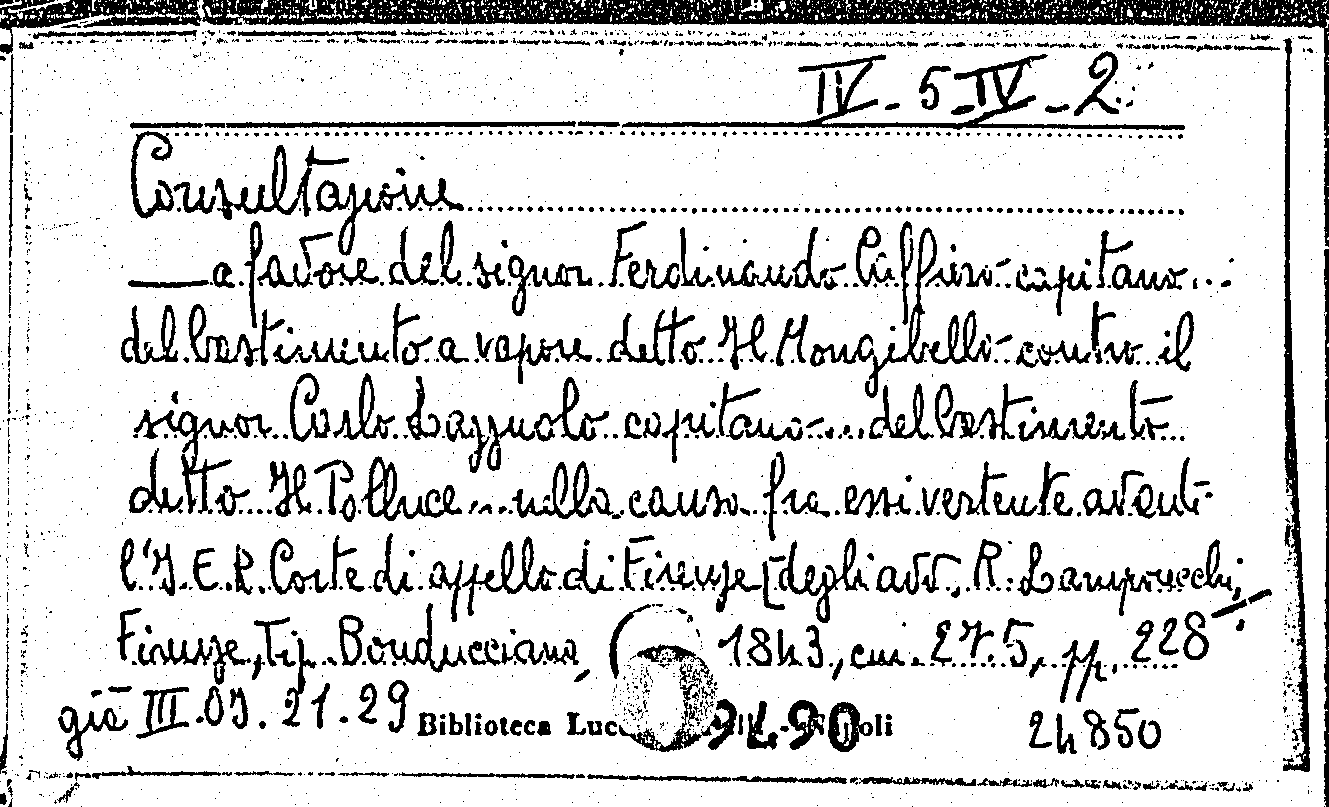 IV - 5 - IV - 2
Consultazione
— a favore del signor Ferdinando Caffiero capitano...
del bastimento a vapore detto Il Mongibello contro il
signor Carlo Lazzuolo capitano... del bastimento
detto Il Polluce... nella causa fra essi vertente avanti
l'I. E. R. Corte di appello di Firenze [degli avv. R. Lampruecchi,
Firenze, Tip. Bonducciana, 1843, cm. 27.5, pp. 228
già III. 09. 21. 29 Biblioteca 9490 24850